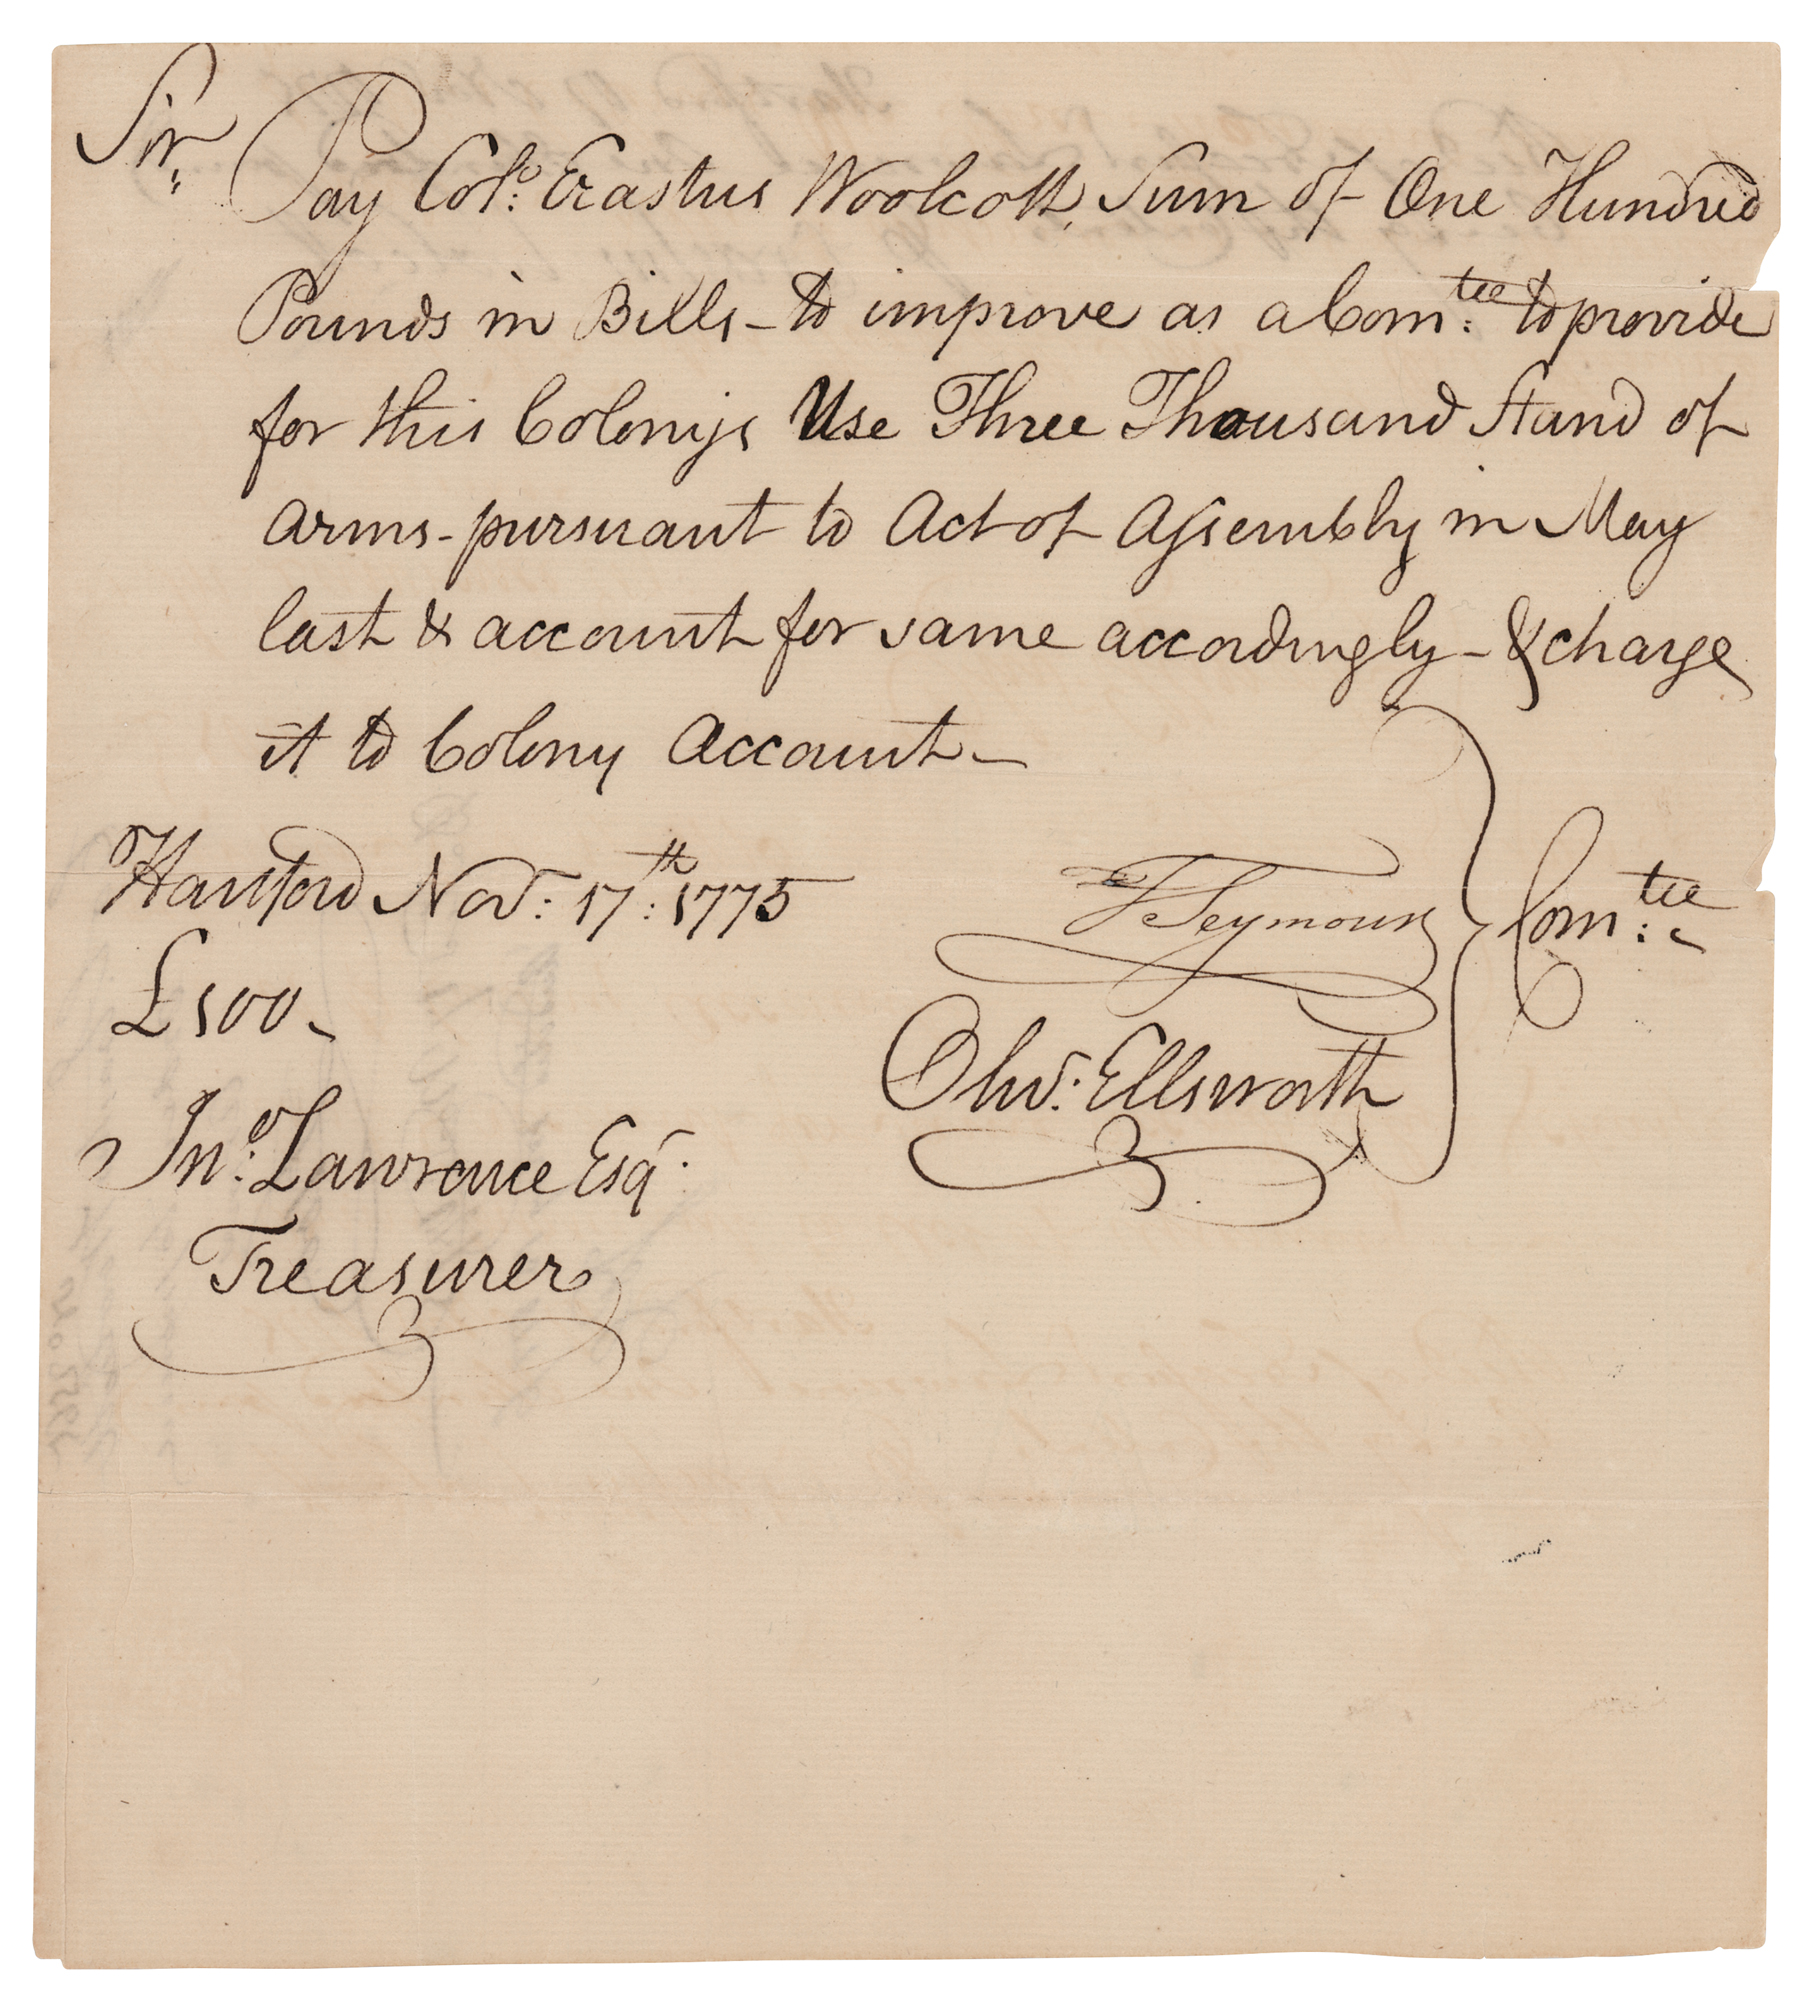 Sir,
Pay Col.º Erastus Woolcott, Sum of One Hundred
Pounds in Bills – to improve as a Com:tee to provide
for this Colonys Use Three Thousand Stand of
Arms – pursuant to Act of Assembly in May
last & account for same accordingly – & charge
it to Colony Account –
Hartford Nov.r 17th: 1775
T Seymour
Com:tee
£100 –
Oliv.r Ellsworth
Jn:o Lawrence Esqr.
Treasurer